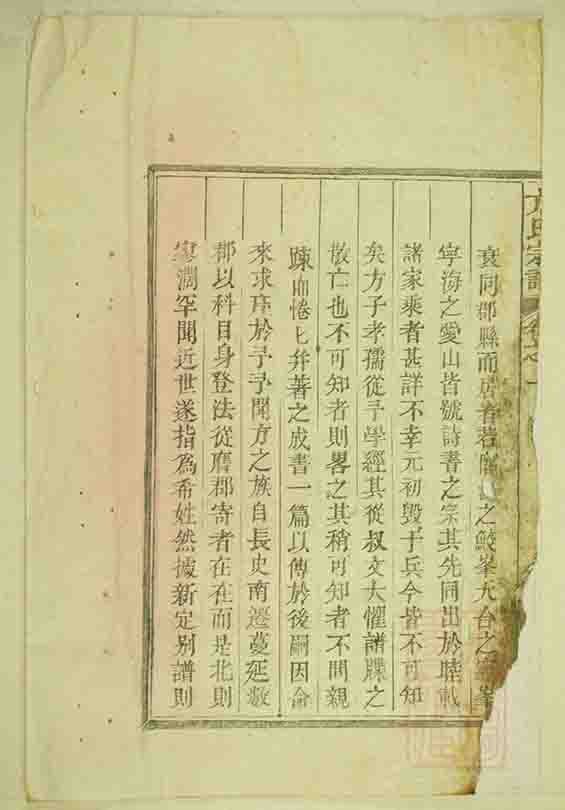 方氏宗譜
袁同郡縣而居者若之鮫峯天台之峯
寧海之愛山皆號詩書之宗其先同出於睦載
諸家乘者甚詳不幸元初毀于兵今皆不可知
矣方子孝孺從予學經其從叔文大懼諸牒之
散亡也不可知者則畧之其稍可知者不間親
疎而惓匕并著之成書一篇以傳於後嗣因俞
來求序於予予聞方之族自長史南遷蔓延數
郡以科目身登法從麾郡寄者在在而是北則
寥濶罕聞近世遂指為希姓然據新定别譜則